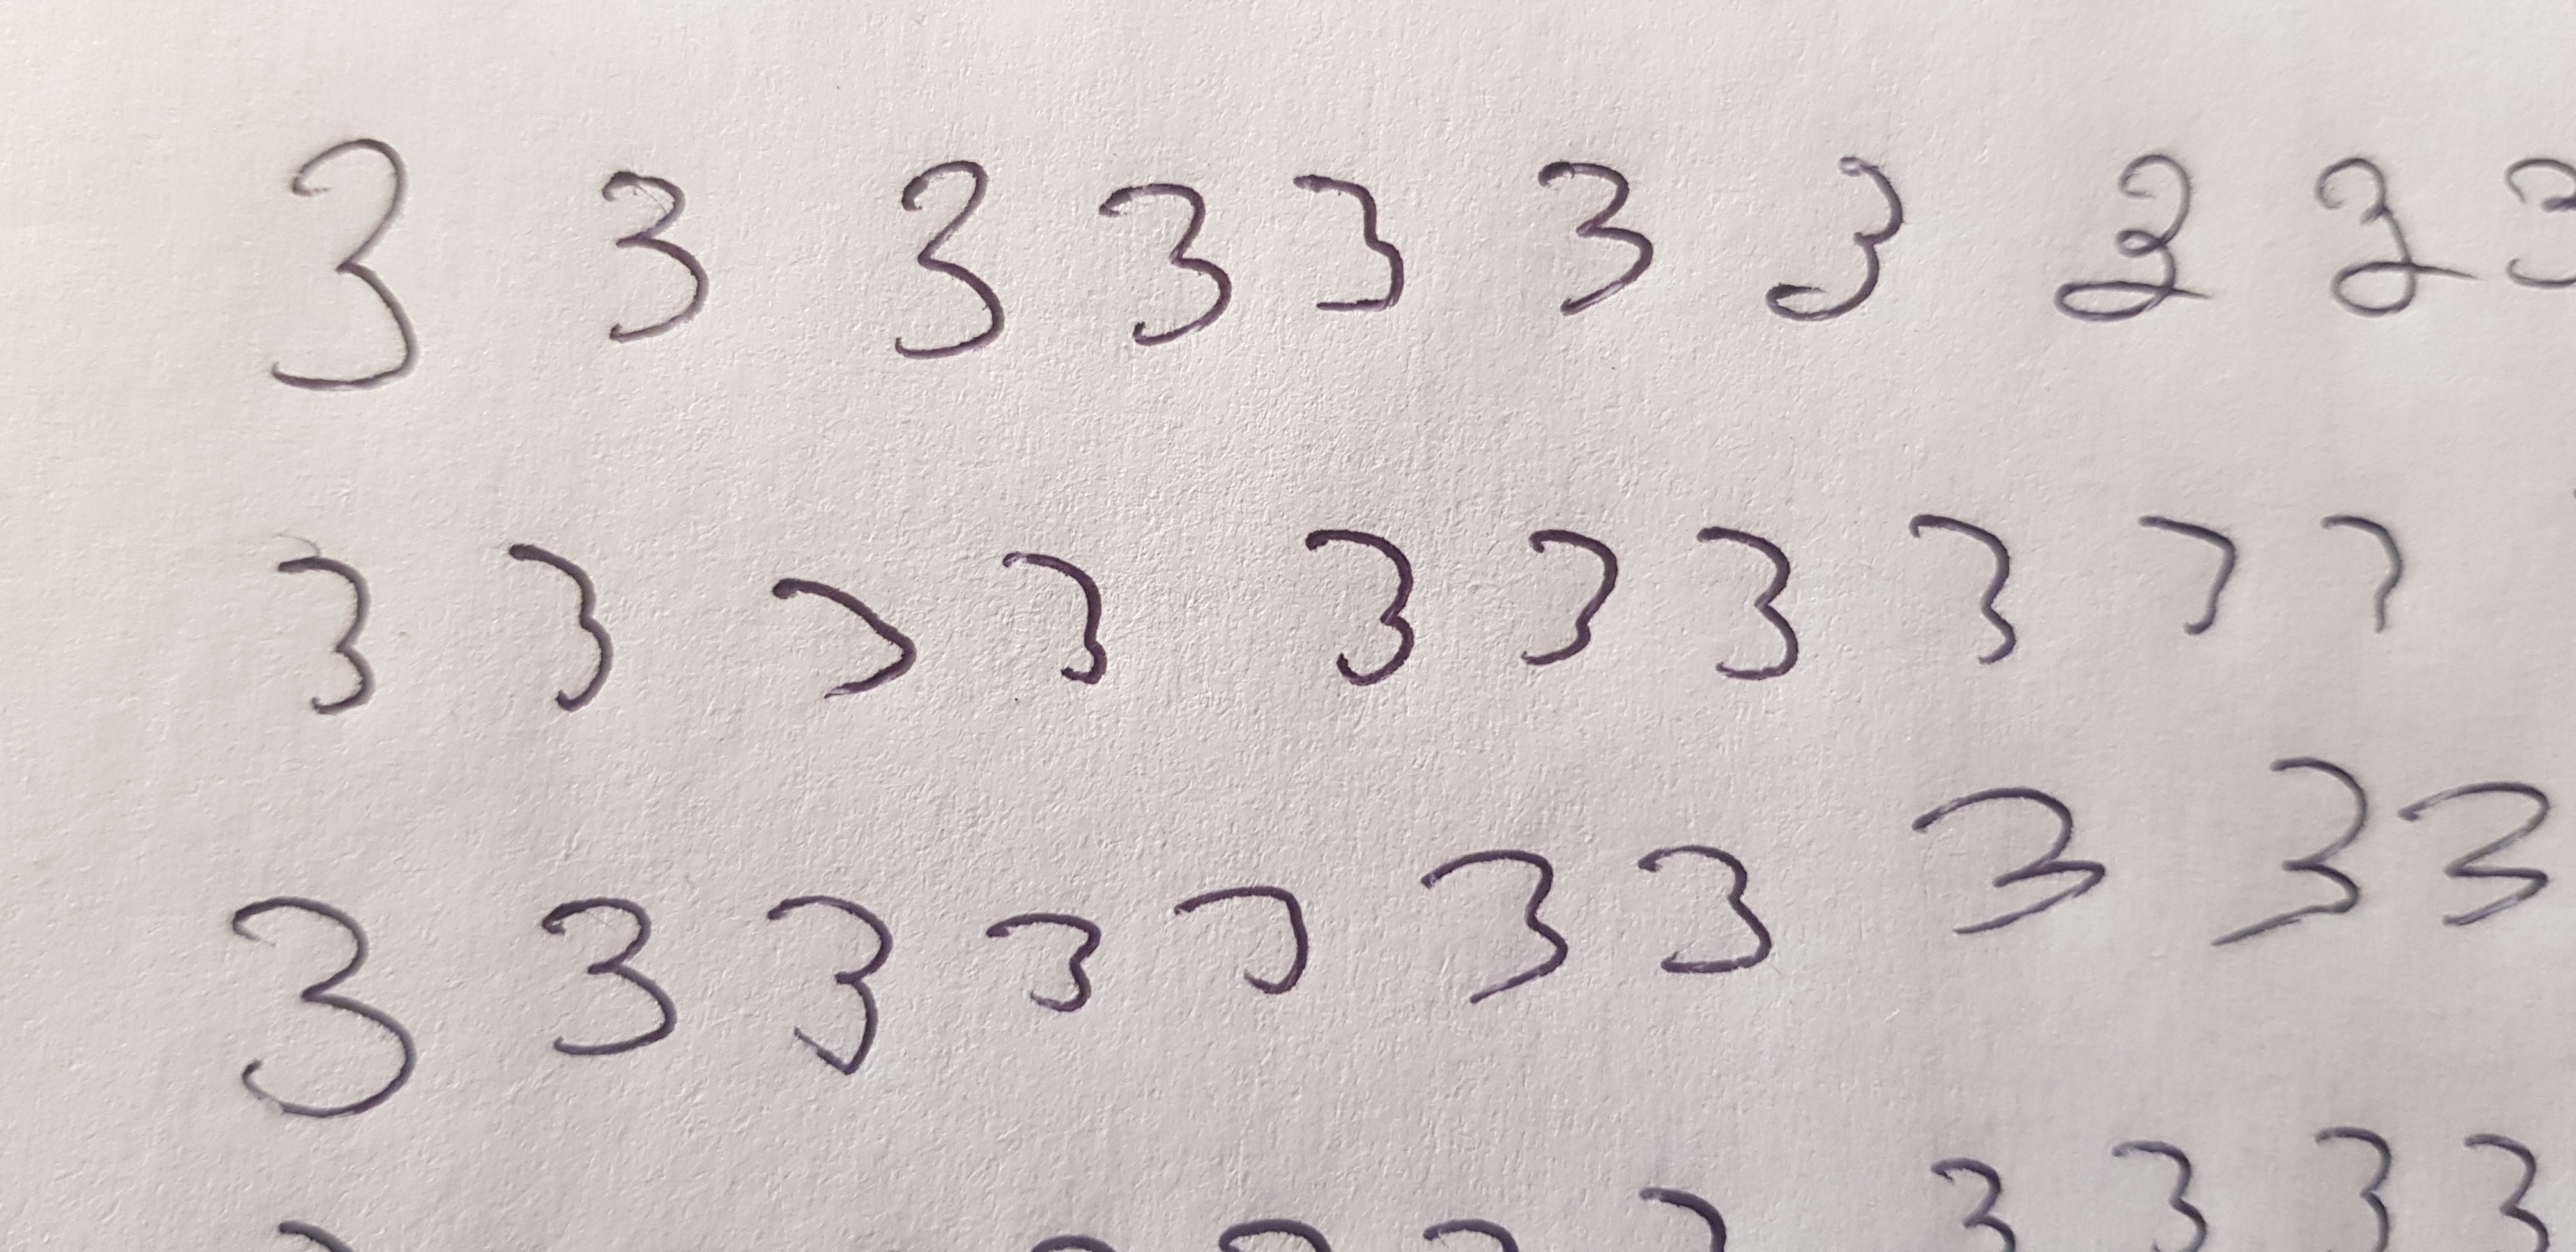 3 3 3 3 3 3 3 3 3 3
3 3 3 3 3 3 3 3
3 3 3 3 3 3 3 3 3 3
3 3 3 3